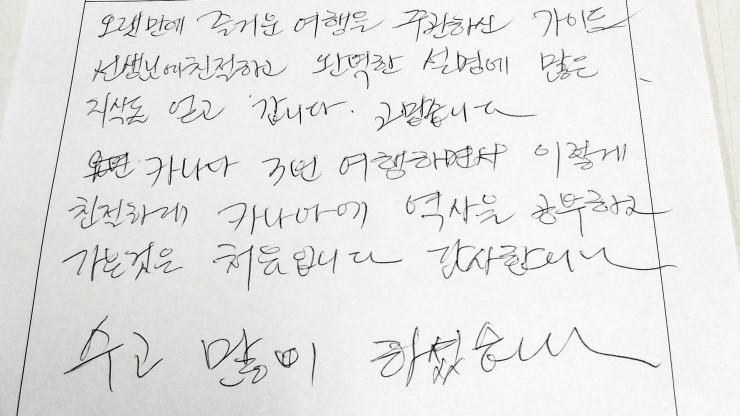 오랫만에 즐거운 여행을 주관하신 가이드
선생님에 친적하고 완벽한 설명에 많은
지식도 얻고 갑니다. 고맙습니다
카나다 3번 여행하면서 이렇게
친적하게 카나다에 역사을 공부하고
가는것은 처음입니다 감사합니다
수고 많이 하셨습니다